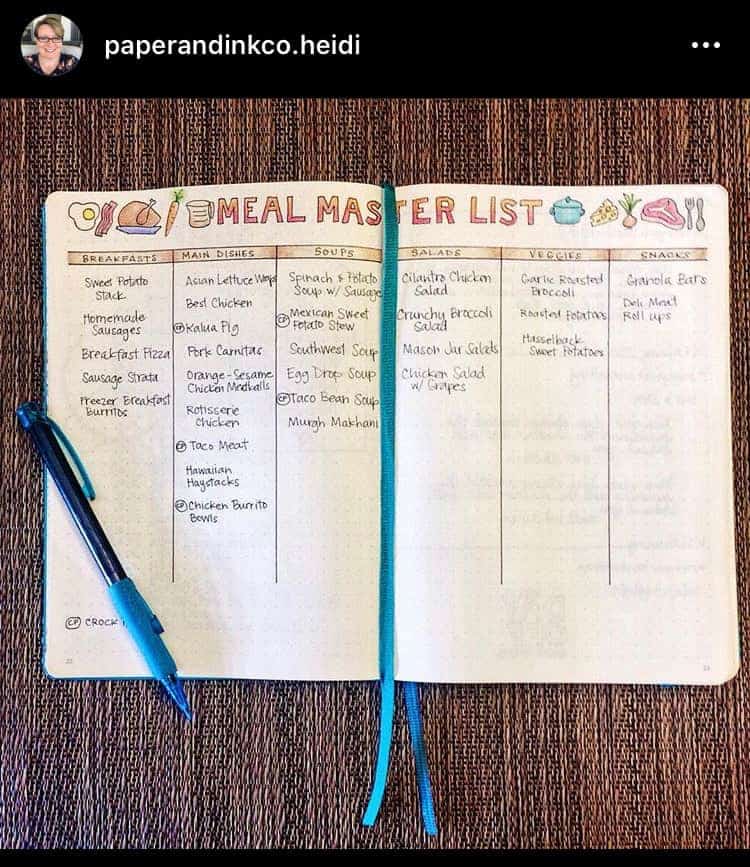 paperandinkco.heidi
MEAL MASTER LIST
BREAKFASTS
Sweet Potato
Stack
Homemade
Sausages
Breakfast Pizza
Sausage Strata
Freezer Breakfast
Burritos
MAIN DISHES
Asian Lettuce Wraps
Best Chicken
CP Kalua Pig
Pork Carnitas
Orange-Sesame
Chicken Meatballs
Rotisserie
Chicken
CP Taco Meat
Hawaiian
Haystacks
CP Chicken Burrito
Bowls
SOUPS
Spinach & Potato
Soup w/ Sausage
CP Mexican Sweet
Potato Stew
Southwest Soup
Egg Drop Soup
CP Taco Bean Soup
Murgh Makhani
SALADS
Cilantro Chicken
Salad
Crunchy Broccoli
Salad
Mason Jar Salads
Chicken Salad
w/ Grapes
VEGGIES
Garlic Roasted
Broccoli
Roasted Potatoes
Hasselback
Sweet Potatoes
SNACKS
Granola Bars
Deli Meat
Roll ups
CP CROCK